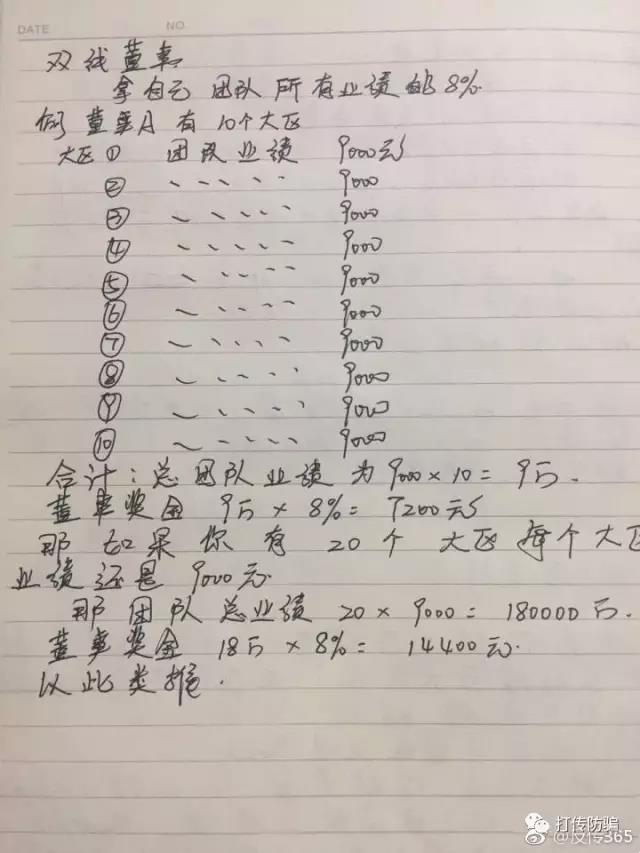 DATE NO.
双线董事
拿自己团队所有业绩的8%
例 董事A有10个大区
大区① 团队业绩 9000元
② 、、、、、 9000
③ 、、、、、 9000
④ 、、、、、 9000
⑤ 、、、、、 9000
⑥ 、、、、、 9000
⑦ 、、、、、 9000
⑧ 、、、、、 9000
⑨ 、、、、、 9000
⑩ 、、、、、 9000
合计:总团队业绩为9000×10=9万.
董事奖金 9万×8%=7200元
那如果你有20个大区每个大区
业绩还是9000元.
那团队总业绩20×9000=180000万.
董事奖金 18万×8%=14400元.
以此类推.
打传防骗
@反传365